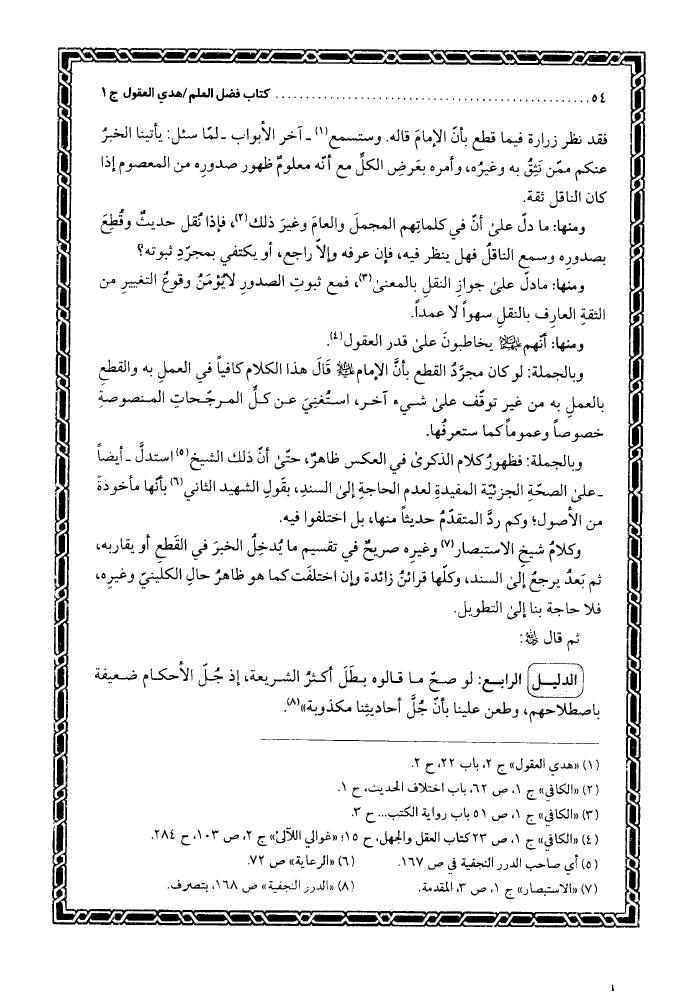 ٥٤ ........................................ كتاب فضل العلم/هدي العقول ج ١
فقد نظر زرارة فيما قطع بأنّ الإمامَ قاله. وستسمع(١) ـ آخر الأبواب ـ لمّا سئل: يأتينا الخبرُ
عنكم ممّن نَثِقُ به وغيرُه، وأمره بعَرضِ الكلِّ مع أنّه معلومٌ ظهور صدورِه من المعصوم إذا
كان الناقل ثقة.
ومنها: ما دلّ علىٰ أنّ في كلماتِهم المجملَ والعامَ وغيرَ ذلك(٢)، فإذا نُقل حديثٌ وقُطِعَ
بصدورِه وسمع الناقلُ فهل ينظر فيه، فإن عرفه وإلاّ راجع، أو يكتفي بمجرّدِ ثبوته؟
ومنها: مادلّ علىٰ جوازِ النقلِ بالمعنىٰ(٣)، فمع ثبوتِ الصدورِ لايُؤْمَنُ وقوعُ التغييرِ من
الثقةِ العارِف بالنقلِ سهواً لا عمداً.
ومنها: أنّهم يخاطبونَ علىٰ قدر العقول(٤).
وبالجملة: لو كان مجرَّدُ القطع بأنَّ الإمام قَالَ هذا الكلام كافياً في العملِ به والقطعِ
بالعملِ به من غير توقّف علىٰ شيء آخر، استُغنِيَ عن كلِّ المرجّحاتِ المنصوصةِ
خصوصاً وعموماً كما ستعرفُها.
وبالجملة: فظهورُ كلام الذكرىٰ في العكس ظاهرٌ، حتّىٰ أنّ ذلك الشيخ(٥) استدلَّ ـ أيضاً
ـ علىٰ الصحّةِ الجزئيّة المفيدةِ لعدم الحاجة إلىٰ السندِ، بقَولِ الشهيد الثاني(٦) بأنّها مأخوذةٌ
من الأصول؛ وكم ردَّ المتقدّمُ حديثاً منها، بل اختلفوا فيه.
وكلامُ شيخِ الاستبصار(٧) وغيرِه صريحٌ في تقسيم ما يُدخِلُ الخبرَ في القَطعِ أو يقاربه،
ثم بَعدُ يرجعُ إلىٰ السند، وكلّها قرائنُ زائدة وإن اختلفَت كما هو ظاهرُ حالِ الكلينيّ وغيرِه،
فلا حاجة بنا إلىٰ التطويل.
ثم قال:
الدليل الرابع: لو صحّ ما قالوه بطَلَ أكثرُ الشريعة، إذ جُلّ الأحكام ضعيفة
باصطلاحهم، وطعن علينا بأنّ جُلَّ أحاديثِنا مكذوبة»(٨).
(١) «هدي العقول» ج ٢، باب ٢٢، ح ٢.
(٢) «الكافي» ج ١، ص ٦٢، باب اختلاف الحديث، ح ١.
(٣) «الكافي» ج ١، ص ٥١ باب رواية الكتب... ح ٣.
(٤) «الكافي» ج ١، ص ٢٣ كتاب العقل والجهل، ح ١٥؛ «غوالي اللآلئ» ج ٢، ص ١٠٣، ح ٢٨٤.
(٥) أي صاحب الدرر النجفية في ص ١٦٧. (٦) «الرعاية» ص ٧٢.
(٧) «الاستبصار» ج ١، ص ٣، المقدمة. (٨) «الدرر النجفية» ص ١٦٨، بتصرف.